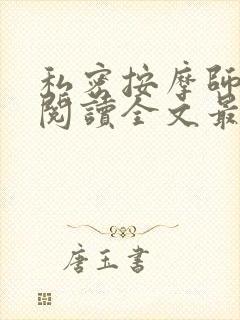 私密按摩師
閱讀全文最
唐玉書